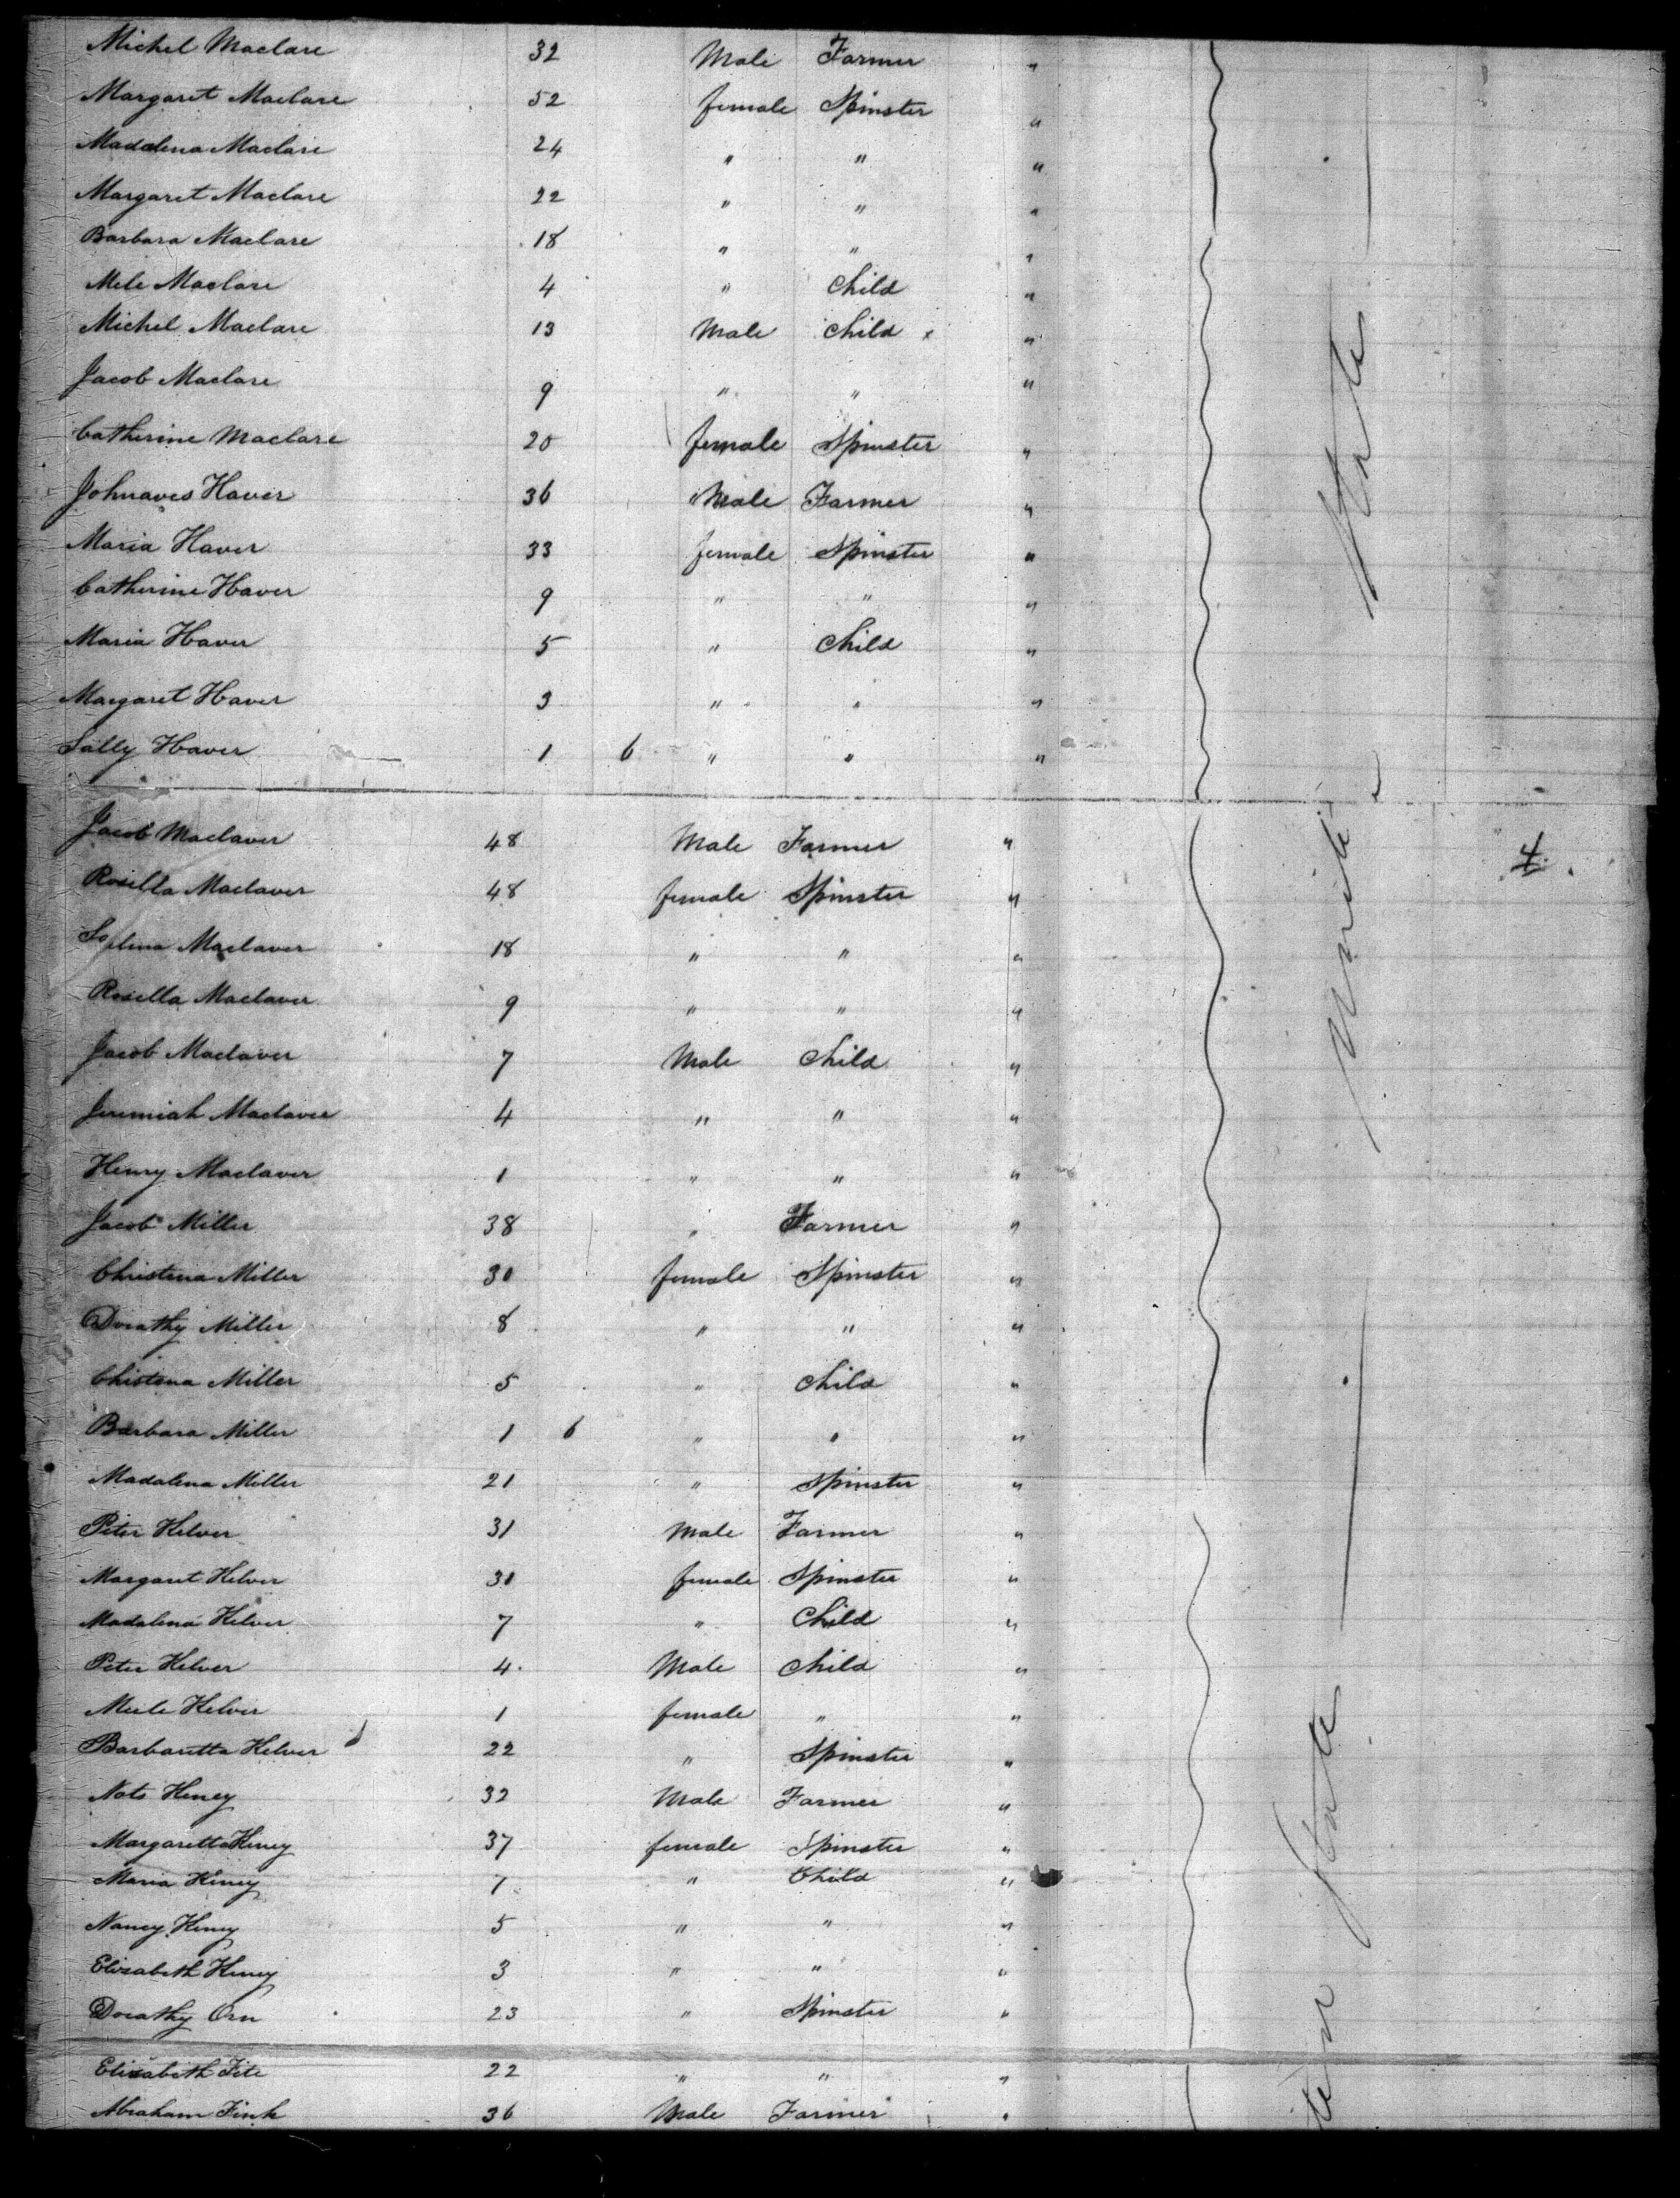 Michel Maclare 32 Male Farmer "
Margaret Maclare 52 female Spinster "
Madalena Maclare 24 " " "
Margaret Maclare 22 " " "
Barbara Maclare 18 " " "
Mele Maclare 4 " Child "
Michel Maclare 13 Male Child x "
Jacob Maclare 9 " " "
Catherine Maclare 20 female Spinster "
Johnaves Haver 36 " Male Farmer "
Maria Haver 33 female Spinster "
Catherine Haver 9 " " "
Maria Haver 5 " Child "
Margaret Haver 3 " " "
Sally Haver 1 6 " " "
Jacob Maclaver 48 Male Farmer "
Rosella Maclaver 48 female Spinster "
Maclaver 18 " " "
Rosella Maclaver 9 " " "
Jacob Maclaver 7 Male Child "
Jeremiah Maclaver 4 " " "
Henry Maclaver 1 " " "
Jacob Miller 38 " Farmer "
Christena Miller 30 female Spinster "
Dorathy Miller 8 " " "
Chistena Miller 5 " Child "
Barbara Miller 1 6 " " "
Madalena Miller 21 " Spinster "
Peter Helver 31 Male Farmer "
Margaret Helver 30 female Spinster "
Madalena Helver 7 " Child "
Peter Helver 4 Male Child "
Meile Helver 1 female " "
Barbaretta Helver 22 " Spinster "
Nots Heney 32 Male Farmer "
Margaretta Heney 37 female Spinster "
Maria Heney 7 " Child "
Nancy Heney 5 " " "
Elizabeth Heney 3 " " "
Dorathy Orn 23 " Spinster "
Elizabeth Fite 22 " " "
Abraham Fink 36 Male Farmer "
State
United
4.
State